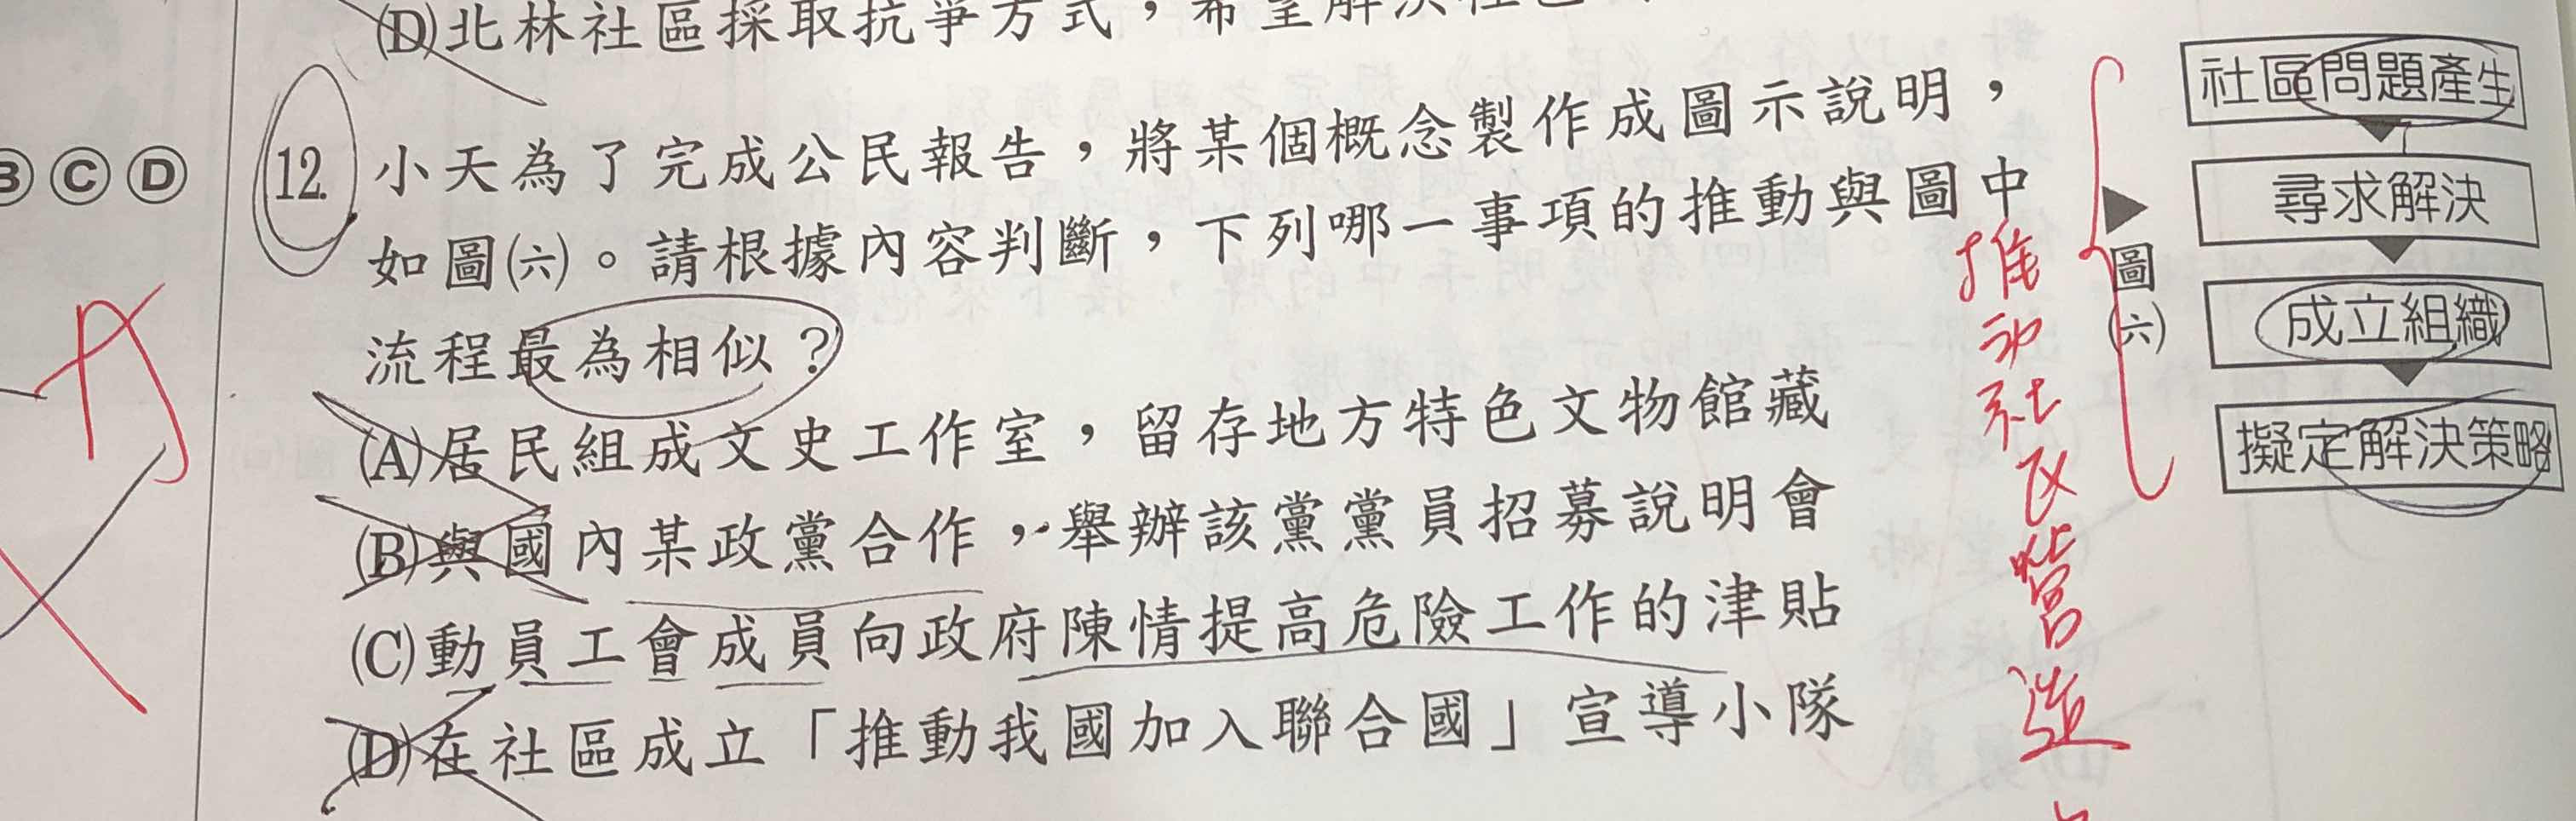 (D)北林社區採取抗爭方式，希望解決社
B C D
12. 小天為了完成公民報告，將某個概念製作成圖示說明，
如圖(六)。請根據內容判斷，下列哪一事項的推動與圖中
流程最為相似？
(A)居民組成文史工作室，留存地方特色文物館藏
(B)與國內某政黨合作，舉辦該黨黨員招募說明會
(C)動員工會成員向政府陳情提高危險工作的津貼
(D)在社區成立「推動我國加入聯合國」宣導小隊
推動社區營造
圖(六)
社區問題產生
尋求解決
成立組織
擬定解決策略